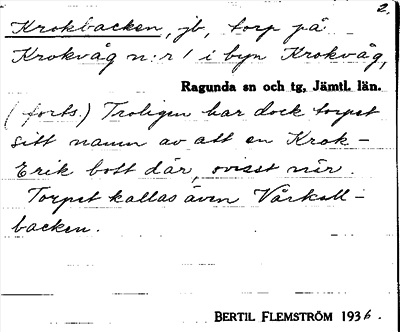 2.
Krokbacken, jb, torp på
Krokvåg n:r 1 i byn Krokvåg,
Ragunda sn och tg, Jämtl. län.
(forts.) Troligen har dock torpet
sitt namn av att en Krok-
Erik bott där, ovisst när.
Torpet kallas även Vårkall-
backen.
BERTIL FLEMSTRÖM 1936.